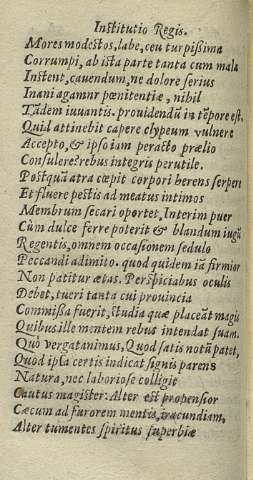 Institutio Regis.
Mores modestos, labe, ceu turpißima
Corrumpi, ab ista parte tanta cum mala
Instent, cauendum, ne dolore serius
Inani agamur pœnitentiæ, nihil
Tãdem iuuantis. prouidendũ in tẽpore est.
Quid attinebit capere clypeum vulnere
Accepto, & ipso iam peracto prælio
Consulere? rebus integris perutile.
Postquã atra cœpit corpori herens serpere
Et fluere pestis ad meatus intimos
Membrum secari oportet, Interim puer
Cùm dulce ferre poterit & blandum iugũ
Regentis, omnem occasionem sedulo
Peccandi adimito. quod quidem iã firmior
Non patitur ætas. Perspiciabus oculis
Debet, tueri tanta cui prouincia
Commißa fuerit, studia quæ placeãt magis
Quibus ille mentem rebus intendat suam.
Quò vergat animus, Quod satis notũ patet,
Quòd ipsa certis indicat signis parens
Natura, nec laboriose colligit
Cautus magister. Alter est propensior
Cæcum ad furorem mentis, iracundiam,
Alter tumentes spiritus superbiæ